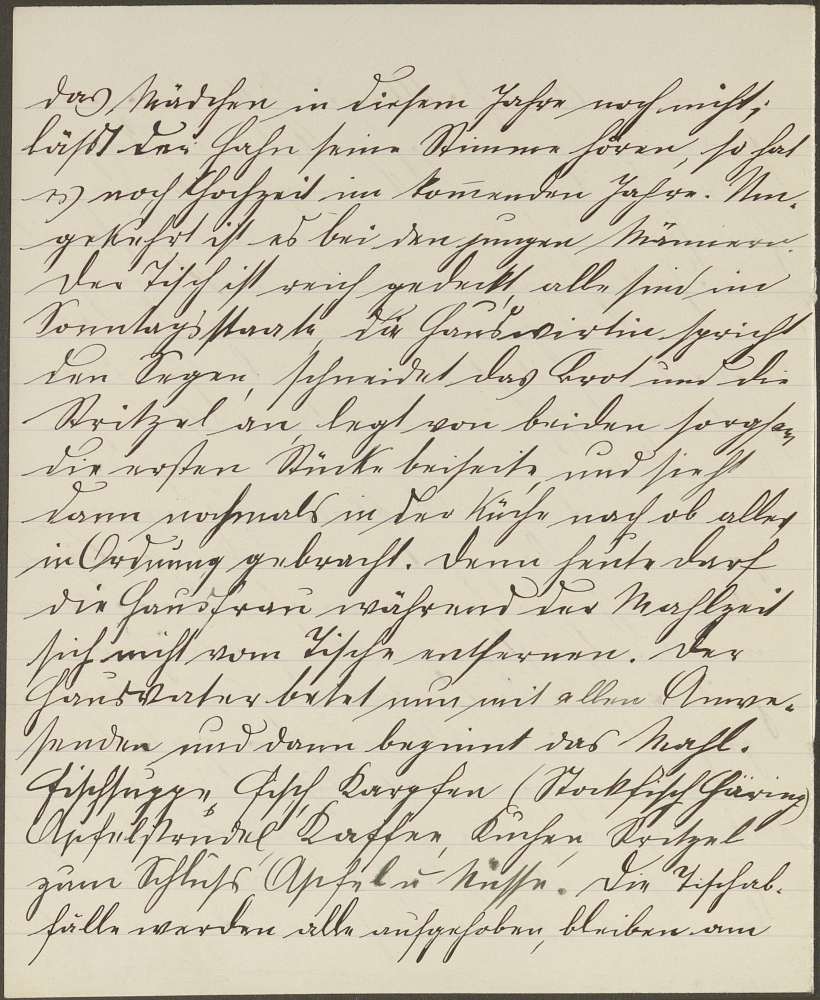 das Mädchen in diesem Jahre noch nicht;
läßt der Hahn seine Stimme hören, so hat
es noch Hochzeit im kommenden Jahre. Um-
gekehrt ist es bei den jungen Männern.
Der Tisch ist reich gedeckt, alle sind im
Sonntagsstaate, die Hauswirtin spricht
den Segen, schneidet das Brot und die
Stritzel an, legt von beiden sorgsam
die ersten Stücke beiseite, und sieht
dann nochmals in der Küche nach ob alles
in Ordnung gebracht. Denn heute darf
die Hausfrau während der Mahlzeit
sich nicht vom Tische entfernen. Der
Hausvater betet nun mit allen Anwe-
senden und dann beginnt das Mahl.
Fischsuppe, Fisch, Karpfen (Stockfisch Häring)
Apfelstrudel, Kaffee, Kuchen, Stritzel
zum Schluß Apfel u Nüsse. Die Tischab-
fälle werden alle aufgehoben, bleiben am